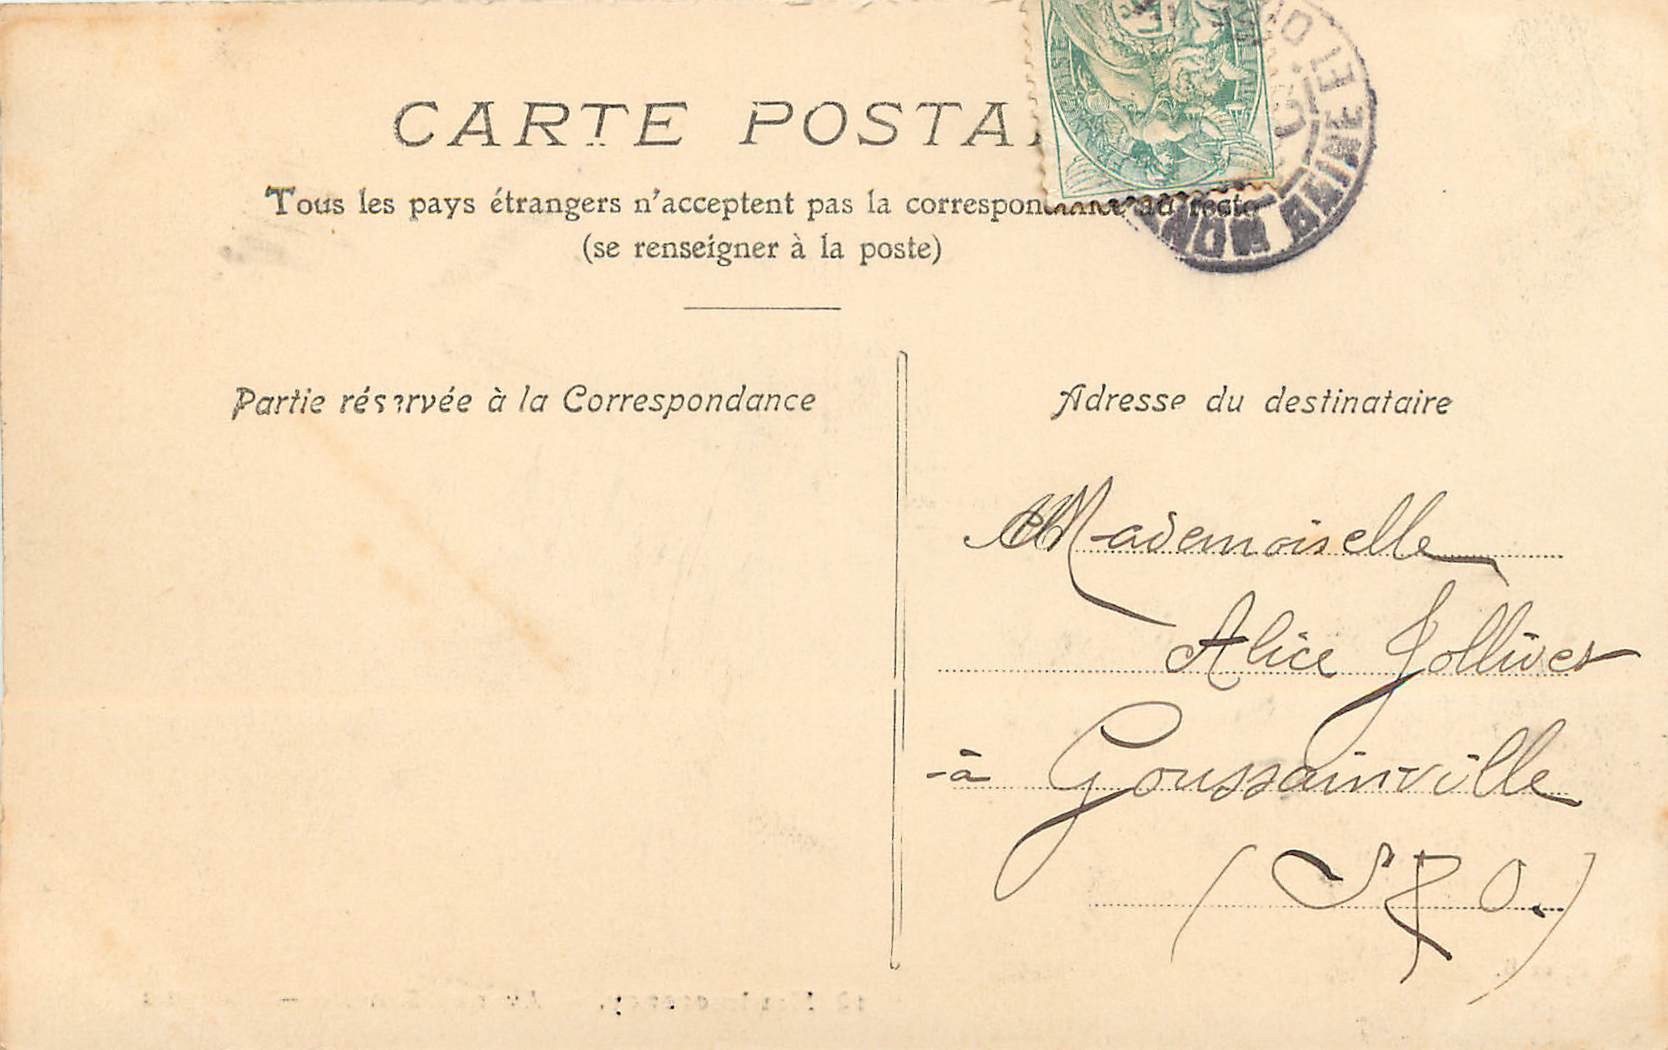 CARTE POSTA
Tous les pays étrangers n'acceptent pas la correspondance au recto
(se renseigner à la poste)
Partie réservée à la Correspondance
Adresse du destinataire
Mademoiselle
Alice Jollivet
à Goussainville
(S & O.)